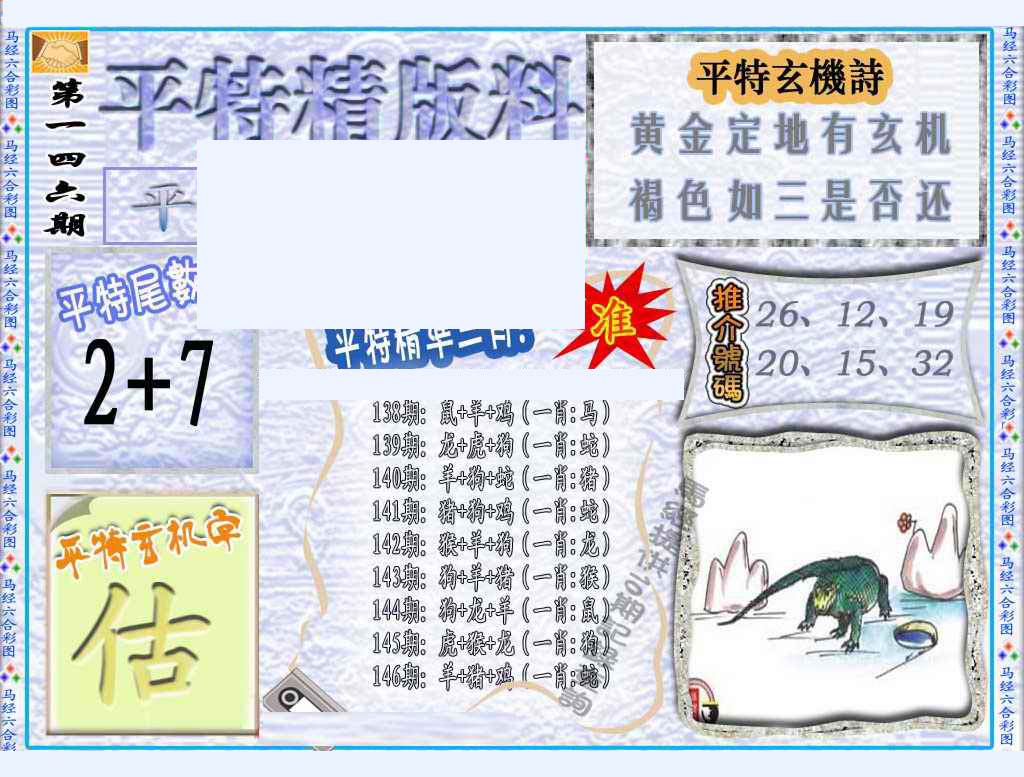 第一四六期
平特精版料
平
平特玄機詩
黄金定地有玄机
褐色如三是否还
平特尾數
2+7
准
推介號碼
26、12、19
20、15、32
138期: 鼠+羊+鸡 (一肖:马)
139期: 龙+虎+狗 (一肖:蛇)
140期: 羊+狗+蛇 (一肖:猪)
141期: 猪+狗+鸡 (一肖:蛇)
142期: 猴+羊+狗 (一肖:龙)
143期: 狗+羊+猪 (一肖:猴)
144期: 狗+龙+羊 (一肖:鼠)
145期: 虎+猴+龙 (一肖:狗)
146期: 羊+猪+鸡 (一肖:蛇)
平特玄机字
估
马经六合彩图
马经六合彩图
马经六合彩图
马经六合彩图
马经六合彩图
马经六合彩图
马经六合彩
马经六合彩图
马经六合彩图
马经六合彩图
马经六合彩图
马经六合彩图
马经六合彩图
马经六合彩图